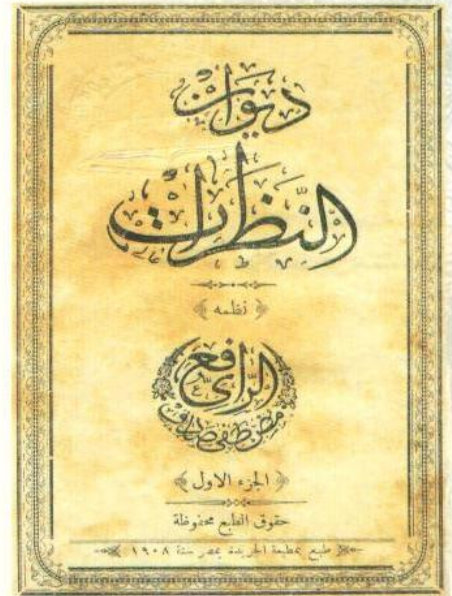 ديوان
النظرات
نظمه
الرافعي
مصطفى صادق
الجزء الاول
حقوق الطبع محفوظة
طبع بمطبعة الجريدة بمصر سنة ١٩٠٨